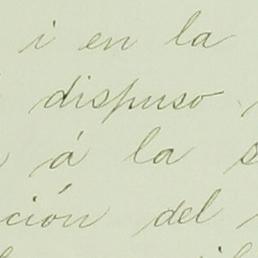 i en la
dispuso
á la s
ción del